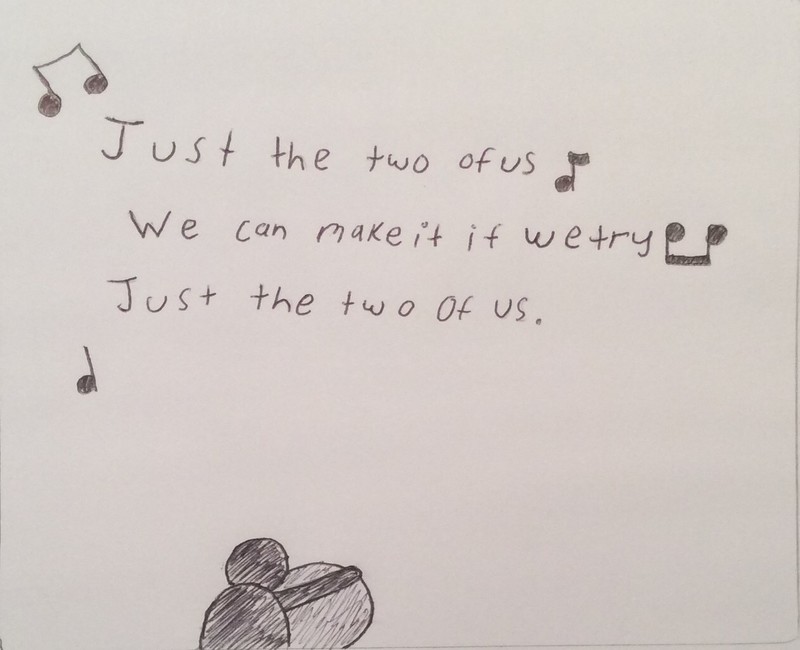 Just the two of us
We can make it if we try
Just the two of us.